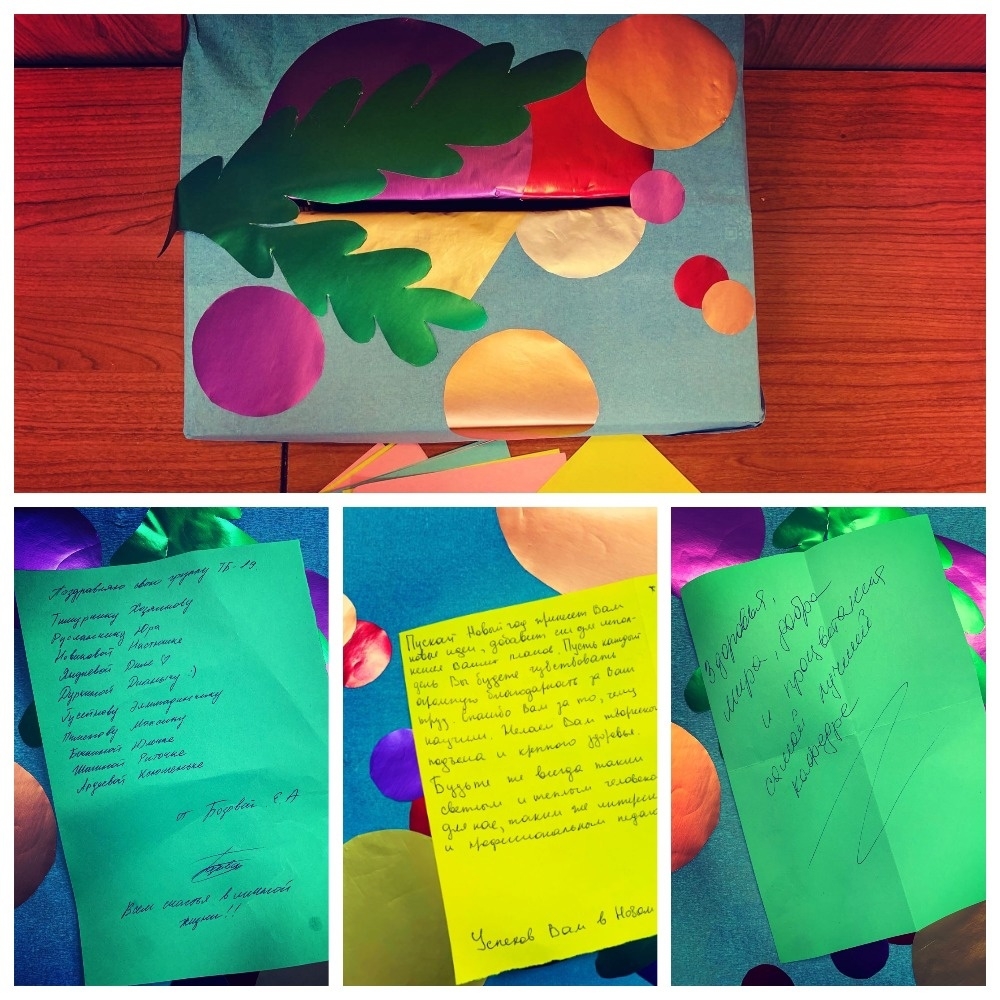 Поздравляю свою группу ТБ-19
Тимурчику
Русланчику
Новиковой
Диме ♡
Дианычу :)
Максиму
Юлечке
Риточке
Ксюшеньке
от
Всем счастья в личной
жизни!!
Пускай Новый год принесет Вам
новые идеи, добавит сил для испол-
нения Ваших планов. Пусть каждый
день Вы будете чувствовать
огромную благодарность за Ваш
труд. Спасибо Вам за то, чему
научили. Желаем Вам творческого
подъема и крепкого здоровья.
Будьте же всегда таким
светлым и теплым человеком
для нас, таким же интересн
и профессиональным педаго
Успехов Вам в Новом
Здоровья,
мира, добра
и процветания
самой лучшей
кафедре